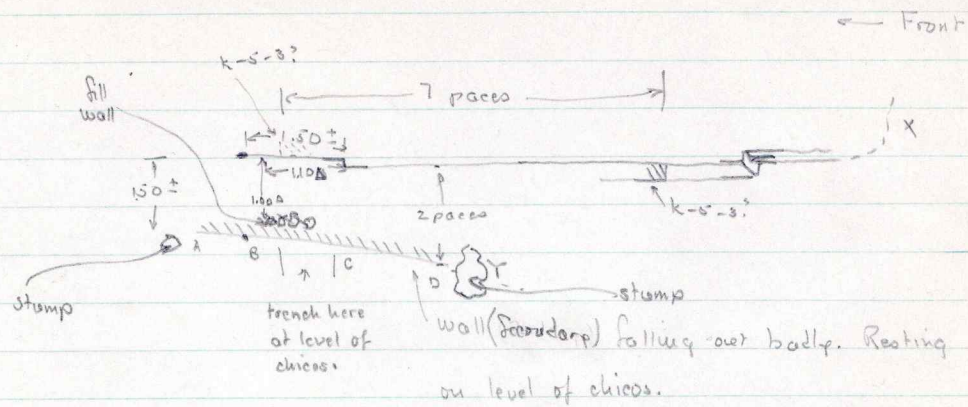 ← Front
K-5-3?
7 paces
fill
wall
1.50 ±
1.10
X
1.50 ±
1.00
2 paces
K-5-3?
A
B
C
D
Y
stump
stump
trench here
at level of
chicos.
wall (Secondary) falling out badly. Resting
on level of chicos.